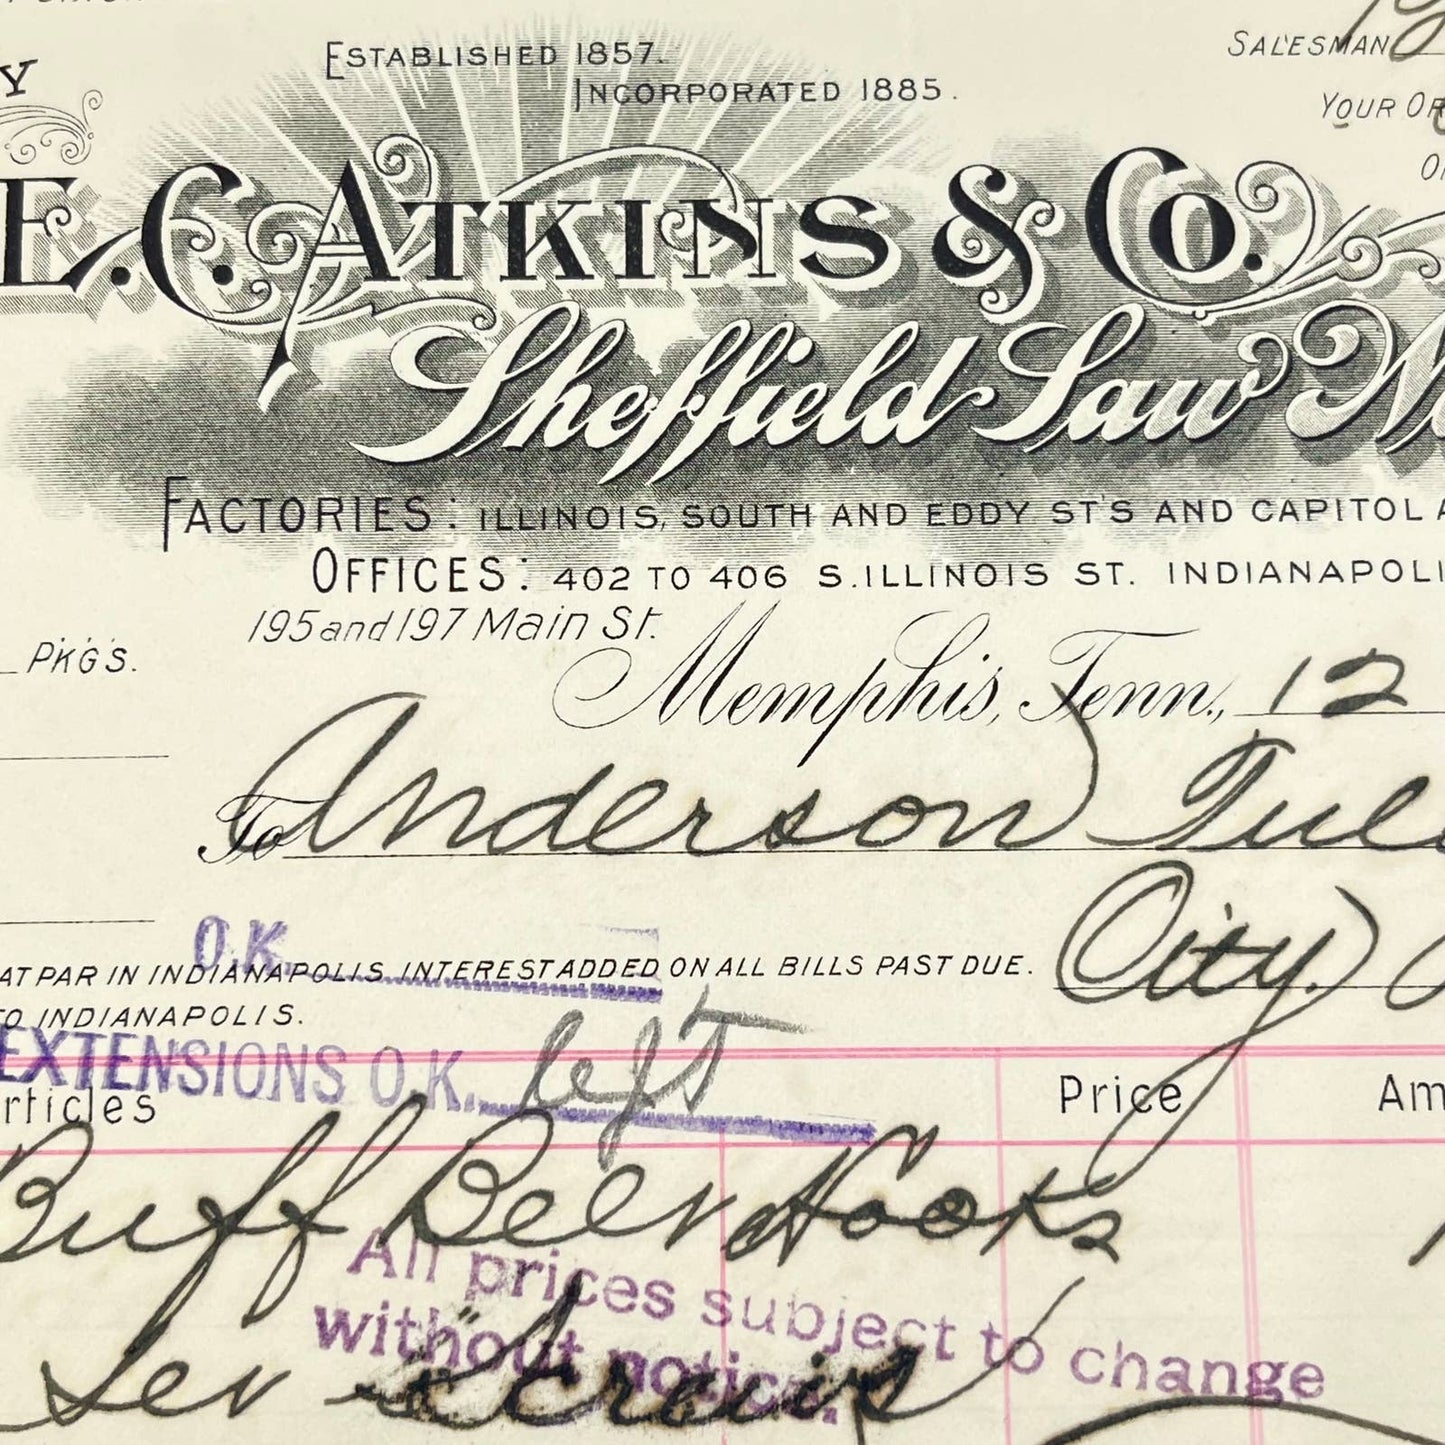 ESTABLISHED 1857.
INCORPORATED 1885.
SALESMAN
YOUR OR
Y
E.C. ATKINS & CO.
Sheffield Saw
FACTORIES: ILLINOIS, SOUTH AND EDDY ST'S AND CAPITOL A
OFFICES: 402 TO 406 S. ILLINOIS ST. INDIANAPOLI
195 and 197 Main St.
PKGS.
Memphis, Tenn., 12
To Anderson Tul
City.
O.K.
AT PAR IN INDIANAPOLIS. INTEREST ADDED ON ALL BILLS PAST DUE.
TO INDIANAPOLIS.
EXTENSIONS O.K. left
rticles Price Am
Buff Belt Hooks
All prices subject to change
without notice.